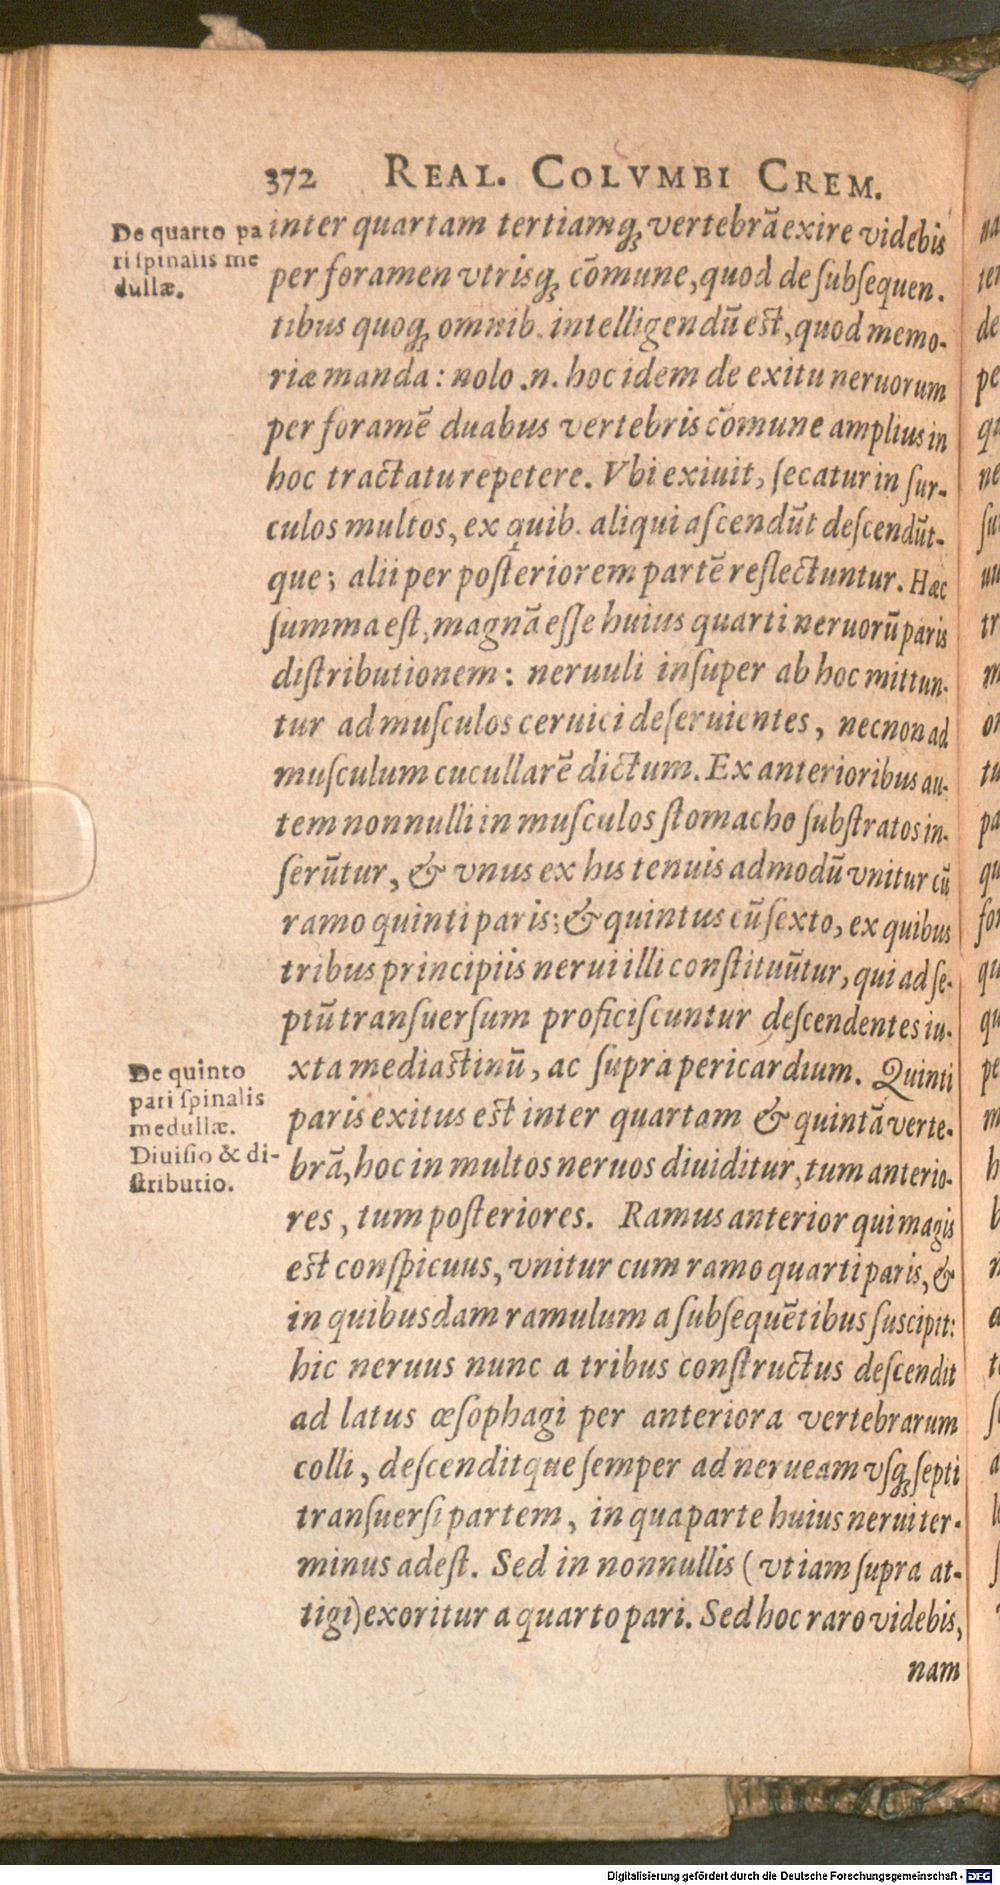 372 REAL. COLVMBI CREM.
De quarto pa
ri ſpinalis me
dullæ.
inter quartam tertiamqꝫ vertebrā exire videbis
per foramen vtrisqꝫ cōmune, quod de ſubſequen.
tibus quoqꝫ omnib. intelligendū est, quod memo-
riæ manda: nolo .n. hoc idem de exitu neruorum
per foramē duabus vertebris cōmune amplius in
hoc tractatu repetere. Vbi exiuit, ſecatur in ſur-
culos multos, ex quib. aliqui aſcendūt deſcendūt-
que; alii per poſteriorem partē reflectuntur. Hæc
ſumma eſt, magnā eſſe huius quarti neruorū paris
diſtributionem: neruuli inſuper ab hoc mittun-
tur ad muſculos ceruici deſeruientes, necnon ad
muſculum cucullarē dictum. Ex anterioribus au-
tem nonnulli in muſculos ſtomacho ſubſtratos in-
ſerūtur, & vnus ex his tenuis admodū vnitur cū
ramo quinti paris; & quintus cū ſexto, ex quibus
tribus principiis nerui illi conſtituūtur, qui ad ſe-
ptū tranſuerſum proficiſcuntur deſcendentes iu-
xta mediastinū, ac ſupra pericardium. Quinti
De quinto
pari ſpinalis
medullæ.
Diuiſio & di-
ſtributio.
paris exitus est inter quartam & quintā verte-
brā, hoc in multos neruos diuiditur, tum anterio-
res, tum poſteriores. Ramus anterior qui magis
est conſpicuus, vnitur cum ramo quarti paris, &
in quibusdam ramulum a ſubſequētibus ſuscipit:
hic neruus nunc a tribus conſtructus deſcendit
ad latus œſophagi per anteriora vertebrarum
colli, deſcenditque ſemper ad nerueam vſqꝫ ſepti
tranſuerſi partem, in qua parte huius nerui ter-
minus adeſt. Sed in nonnullis (vt iam ſupra at-
tigi) exoritur a quarto pari. Sed hoc raro videbis,
nam
Digitalisierung gefördert durch die Deutsche Forschungsgemeinschaft - DFG